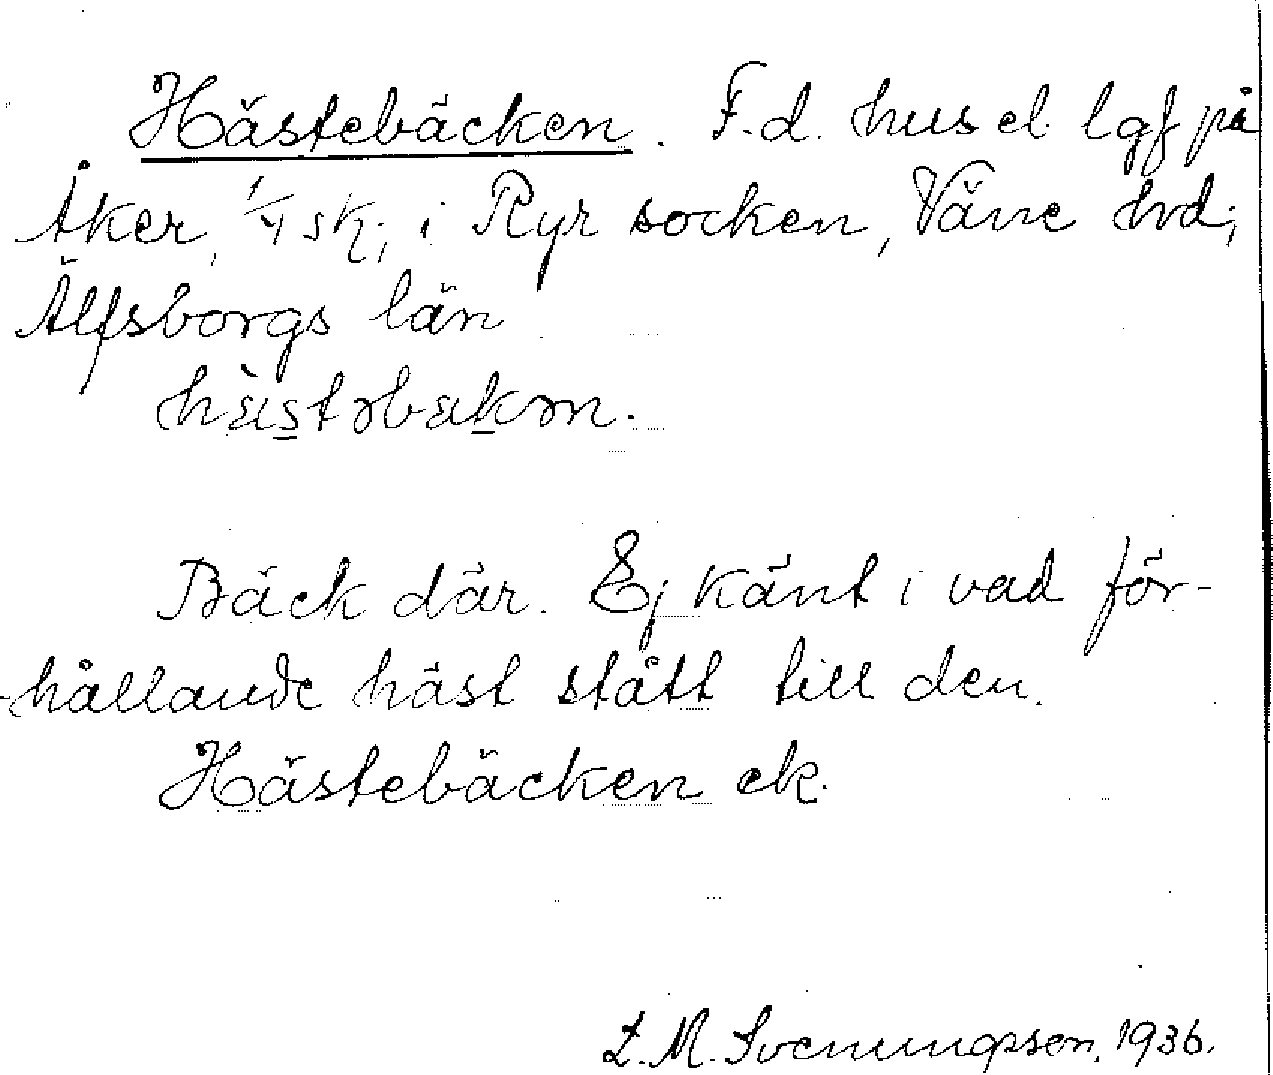 Hästebäcken. F.d. hus el. lgf på
Åker, 1/4 sk., i Ryr socken, Väne hrd,
Älfsborgs län
Bäck där. Ej känt i vad för-
hållande häst stått till den.
Hästebäcken ek.
L. M. Svenungsson, 1936.